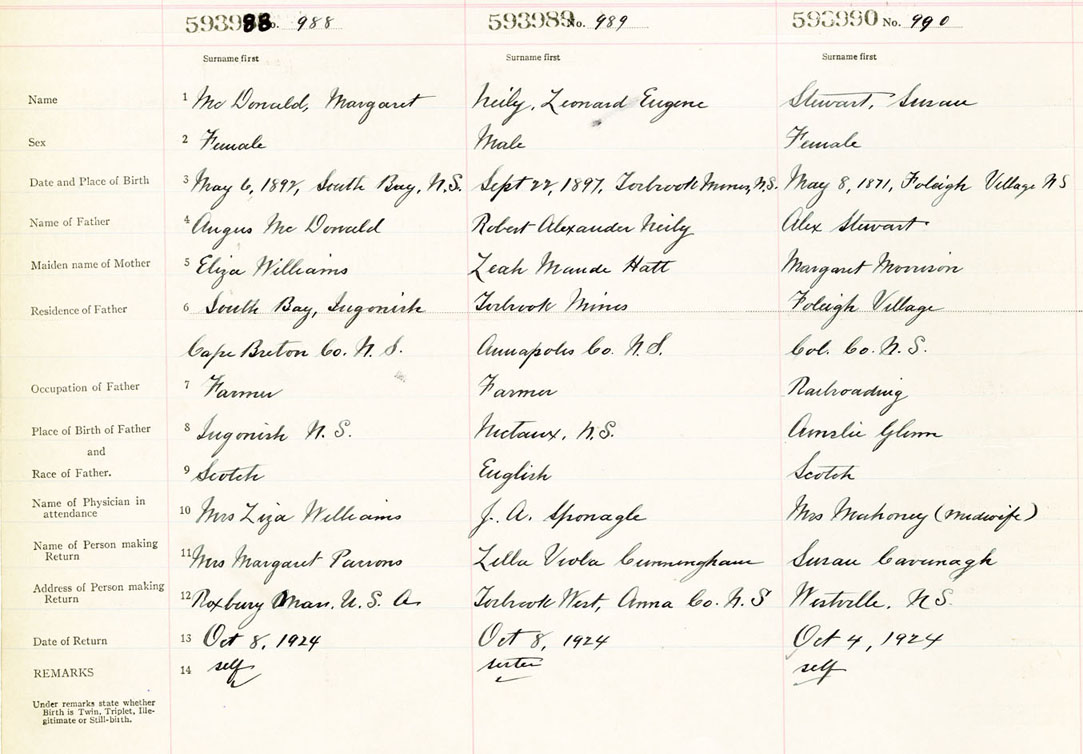 593988 No. 988 593989 No. 989 593990 No. 990
Surname first Surname first Surname first
Name 1 Mc Donald, Margaret Neily, Leonard Eugene Stewart, Susan
Sex 2 Female Male Female
Date and Place of Birth 3 May 6, 1892, South Bay, N.S. Sept 22, 1897, Torbrook Mines, N.S. May 8, 1871, Foleigh Village NS
Name of Father 4 Angus Mc Donald Robert Alexander Neily Alex Stewart
Maiden name of Mother 5 Eliza Williams Leah Maude Hatt Margaret Morrison
Residence of Father 6 South Bay, Ingonish Torbrook Mines Foleigh Village
Cape Breton Co. N.S. Annapolis Co. N.S. Col. Co. N.S.
Occupation of Father 7 Farmer Farmer Railroading
Place of Birth of Father 8 Ingonish N.S. Nictaux, N.S. Ainslie Glenn
and
Race of Father. 9 Scotch English Scotch
Name of Physician in
attendance 10 Mrs Liza Williams J. A. Sponagle Mrs Mahoney (Midwife)
Name of Person making
Return 11 Mrs Margaret Parsons Lella Viola Cunningham Susan Cavanagh
Address of Person making
Return 12 Roxbury Mass. U.S. A. Torbrook West, Anna Co. N.S Westville, N.S.
Date of Return 13 Oct 8, 1924 Oct 8, 1924 Oct 4, 1924
REMARKS 14 self sister self
Under remarks state whether
Birth is Twin, Triplet, Ille-
gitimate or Still-birth.